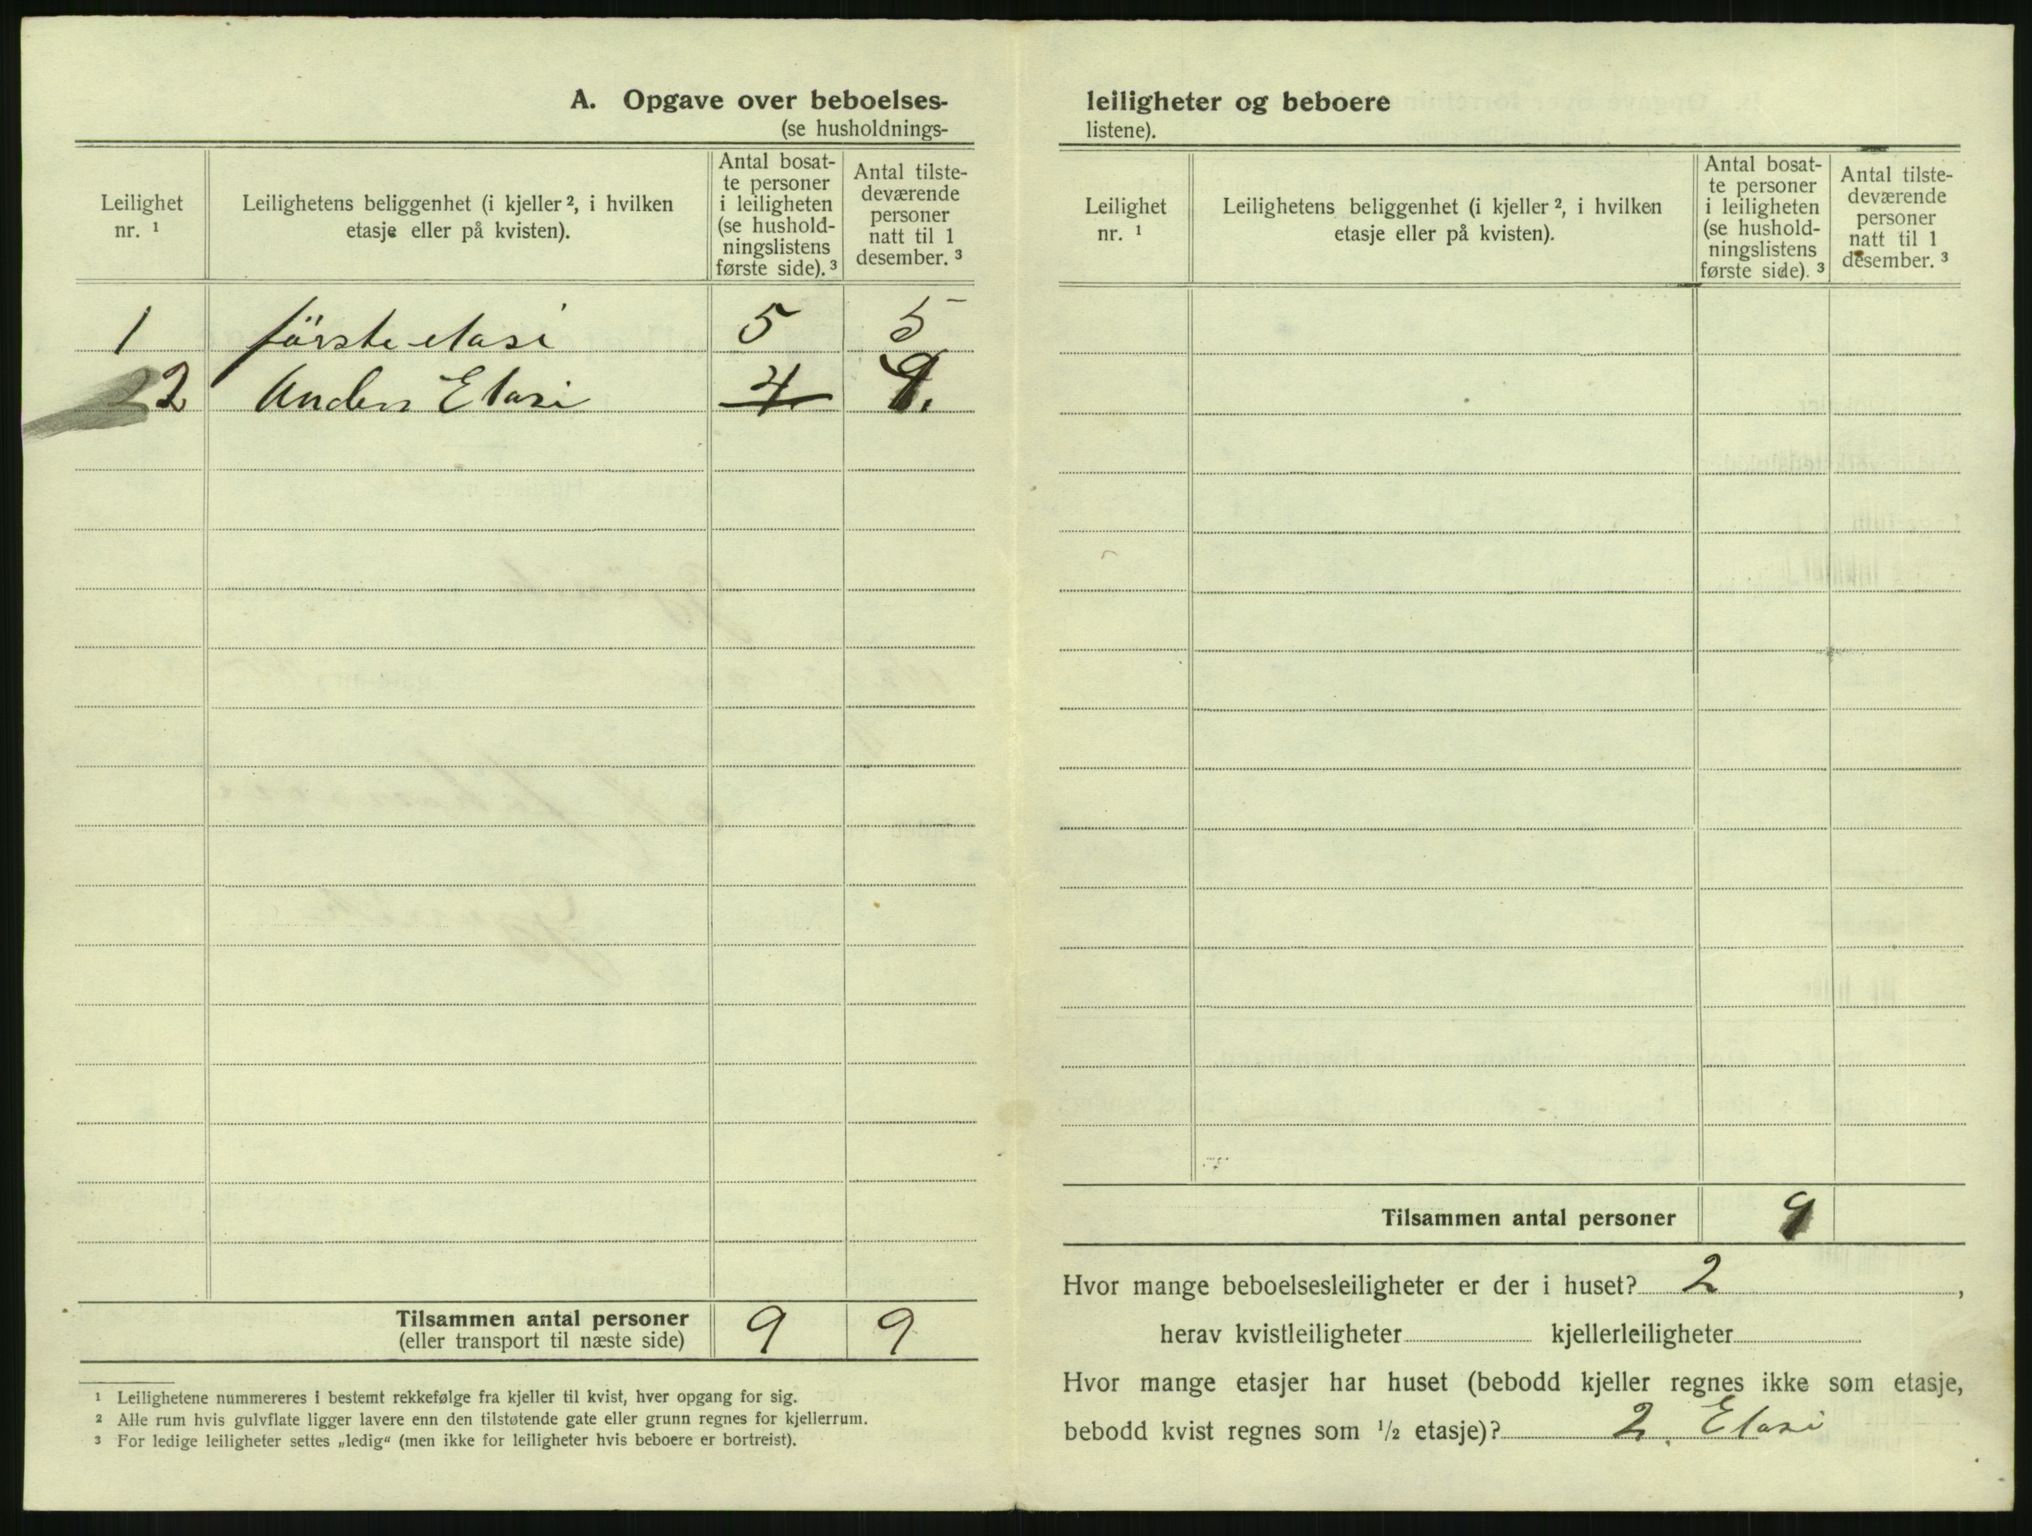 A. Opgave over beboelses-
(se husholdnings-
Leilighet
nr. ¹
Leilighetens beliggenhet (i kjeller ², i hvilken
etasje eller på kvisten).
Antal bosat-
te personer
i leiligheten
(se hushold-
ningslistens
første side). ³
Antal tilste-
deværende
personer
natt til 1
desember. ³
1 förste etasi 5 5
2 Anden Etasi 4
Tilsammen antal personer 9 9
(eller transport til næste side)
¹ Leilighetene nummereres i bestemt rekkefølge fra kjeller til kvist, hver opgang for sig.
² Alle rum hvis gulvflate ligger lavere enn den tilstøtende gate eller grunn regnes for kjellerrum.
³ For ledige leiligheter settes „ledig“ (men ikke for leiligheter hvis beboere er bortreist).
leiligheter og beboere
listene).
Leilighet
nr. ¹
Leilighetens beliggenhet (i kjeller ², i hvilken
etasje eller på kvisten).
Antal bosat-
te personer
i leiligheten
(se hushold-
ningslistens
første side). ³
Antal tilste-
deværende
personer
natt til 1
desember. ³
Tilsammen antal personer 9
Hvor mange beboelsesleiligheter er der i huset? 2,
herav kvistleiligheter kjellerleiligheter
Hvor mange etasjer har huset (bebodd kjeller regnes ikke som etasje,
bebodd kvist regnes som ½ etasje)? 2. Etasi